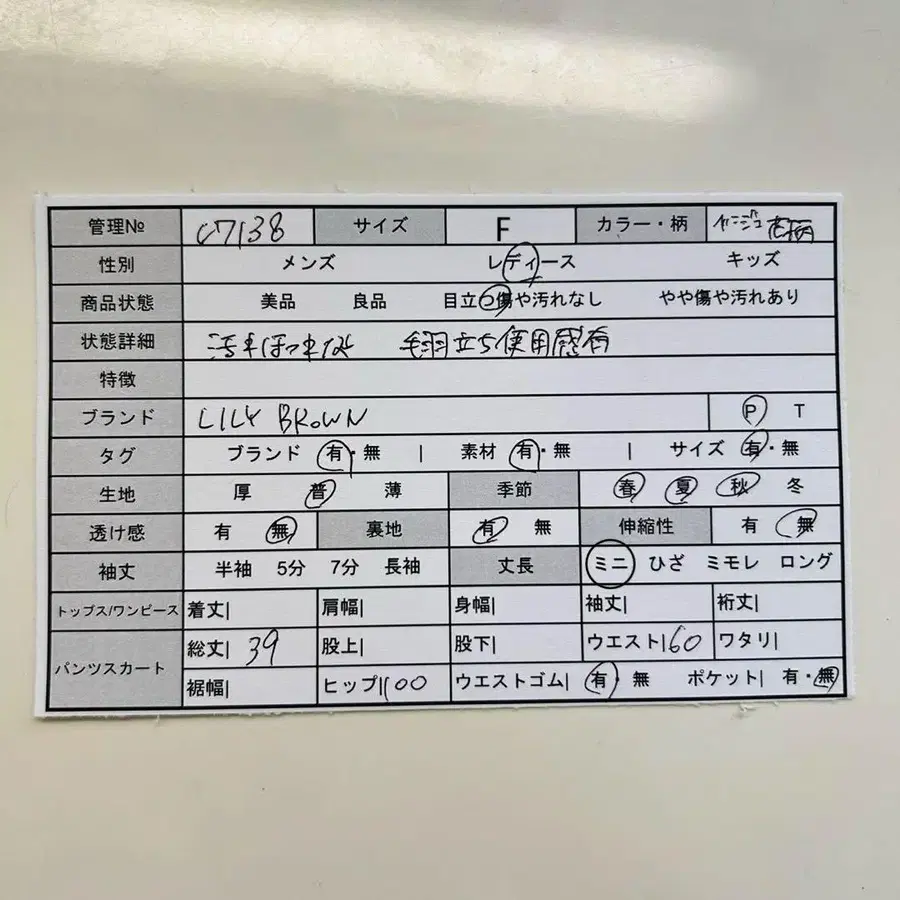 管理№ C7138 サイズ F カラー・柄 柄
性別 メンズ レディース キッズ
商品状態 美品 良品 目立つ傷や汚れなし やや傷や汚れあり
状態詳細 汚れほつれなし 毛羽立ち使用感有
特徴
ブランド LILY BROWN P T
タグ ブランド 有・無 | 素材 有・無 | サイズ 有・無
生地 厚 普 薄 季節 春 夏 秋 冬
透け感 有 無 裏地 有 無 伸縮性 有 無
袖丈 半袖 5分 7分 長袖 丈長 ミニ ひざ ミモレ ロング
トップス/ワンピース 着丈| 肩幅| 身幅| 袖丈| 裄丈|
パンツスカート 総丈| 39 股上| 股下| ウエスト| 60 ワタリ|
裾幅| ヒップ| 100 ウエストゴム| 有・無 ポケット| 有・無